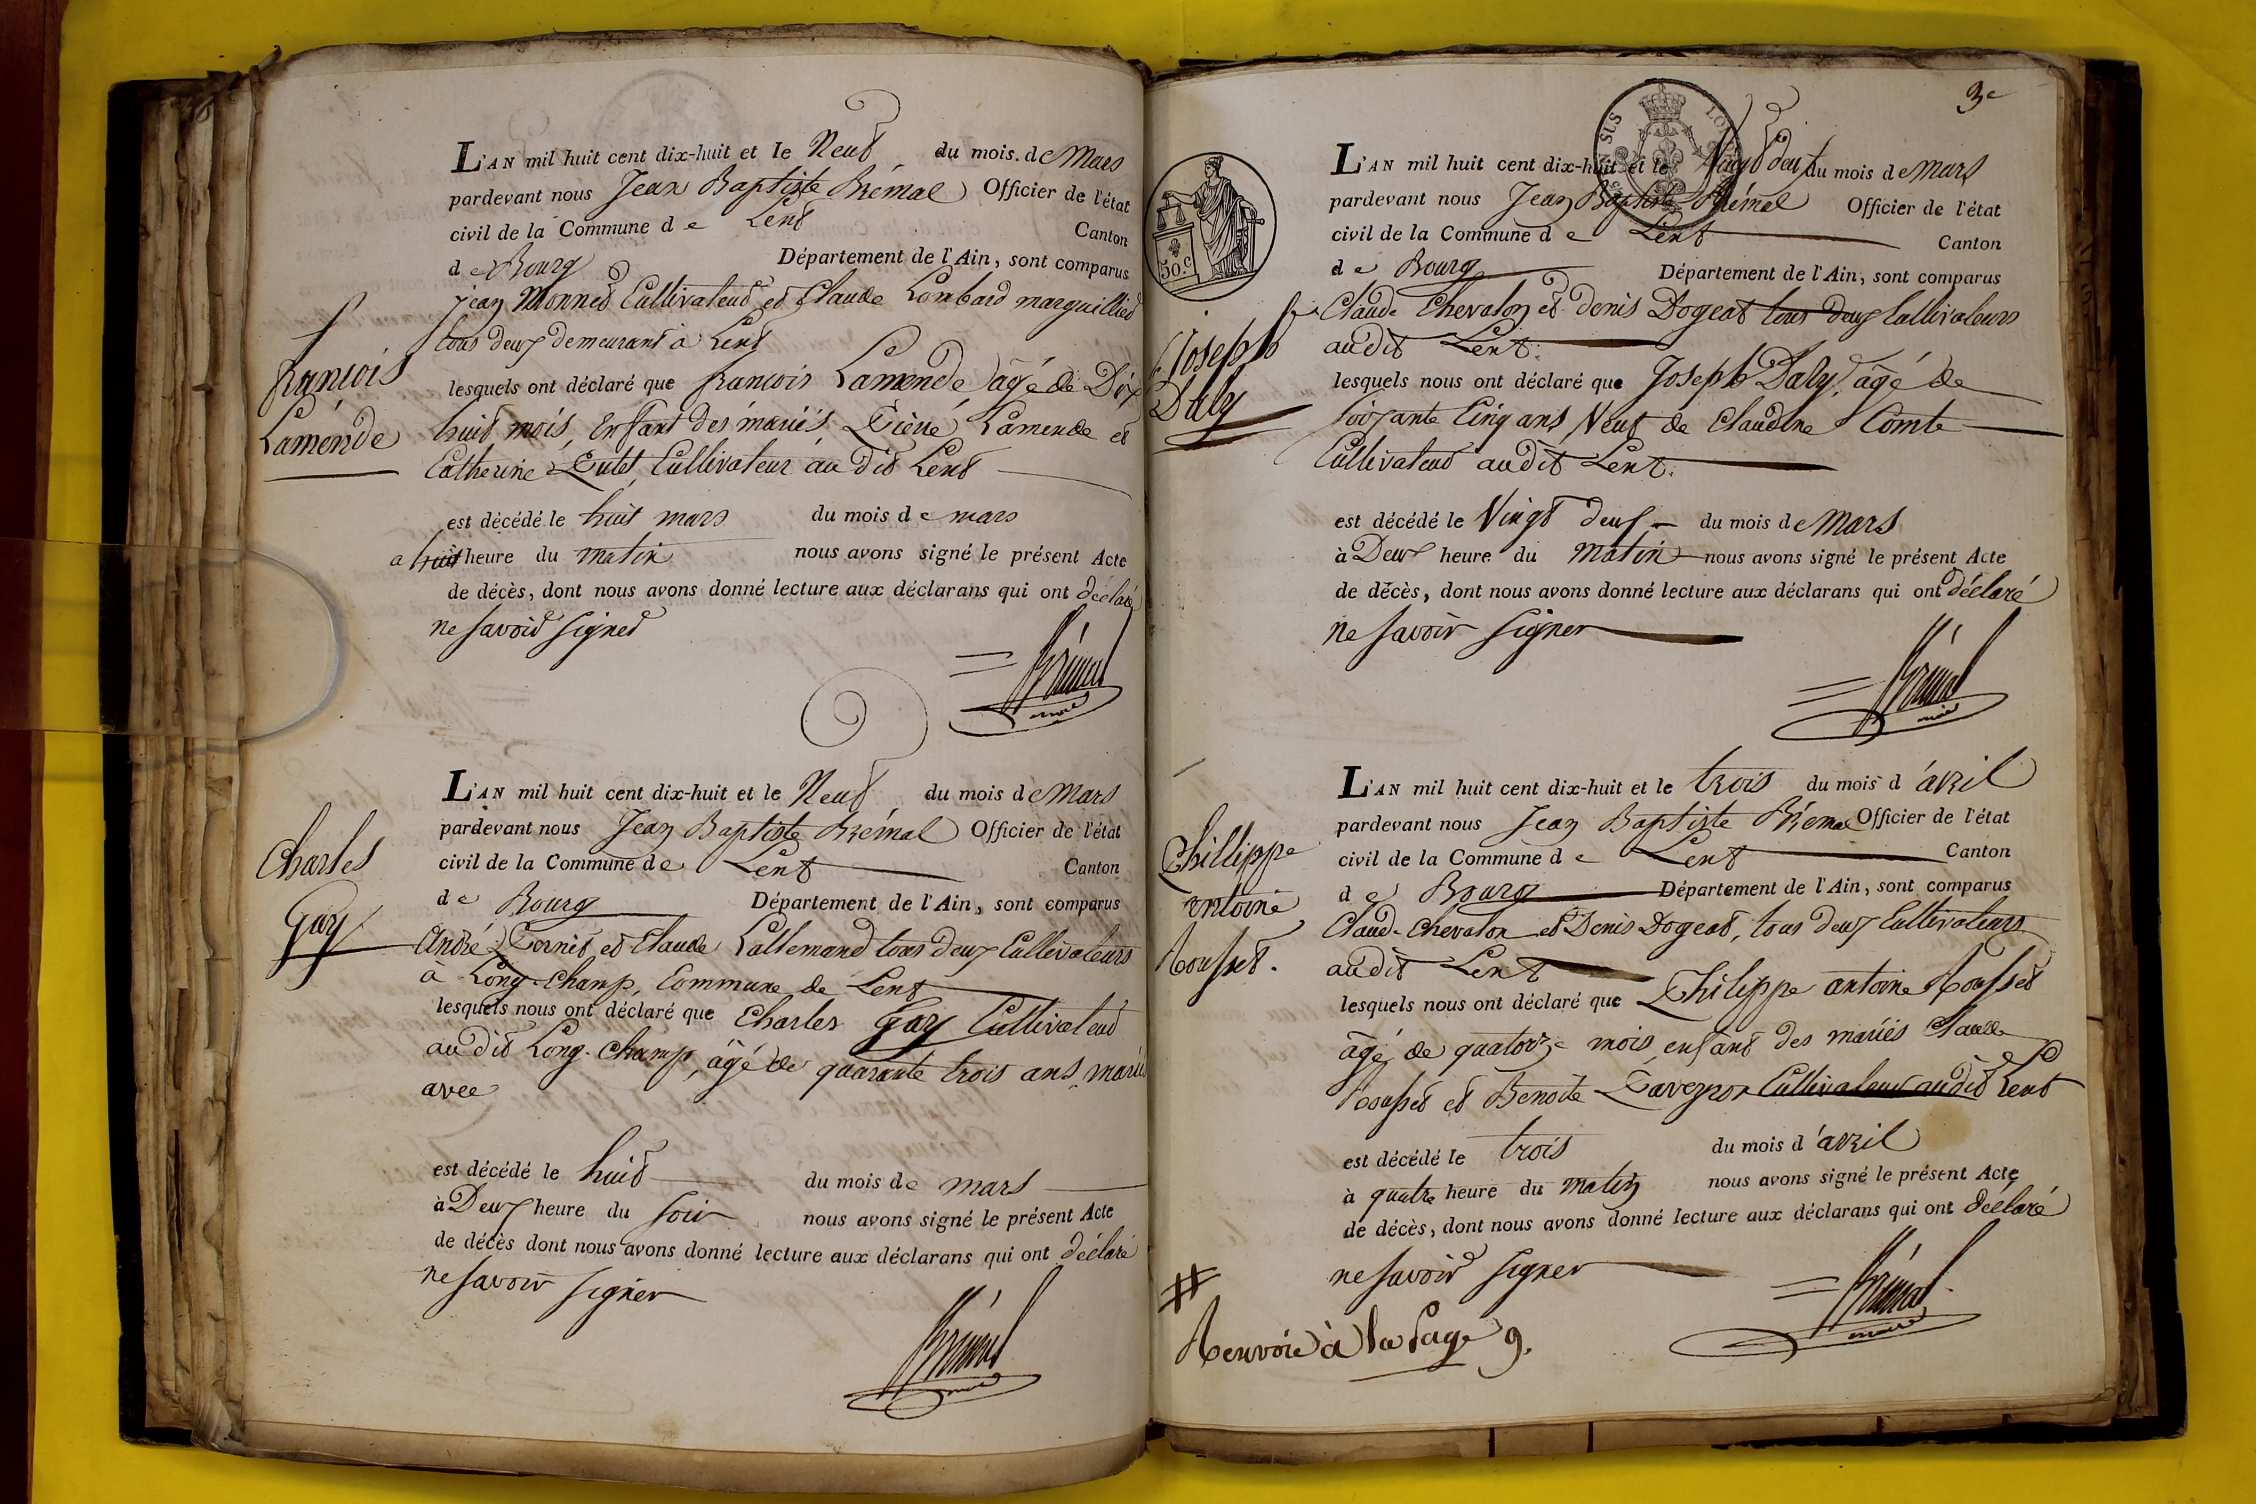 L'AN mil huit cent dix-huit et le Neuf du mois de Mars
pardevant nous Jean Baptiste Brémal Officier de l'état
civil de la Commune de Lent Canton
de Bourg Département de l'Ain, sont comparus
jean Monnet Cultivateur et Claude Lombard marguillier
tous deux demeurant à Lent
françois
Lamende
lesquels ont déclaré que françois Lamende âgé de Dix
huit mois, enfant des mariés Lamende et
Catherine Cultivateur au dit Lent
est décédé le huit mars du mois de mars
a huit heure du matin nous avons signé le présent Acte
de décès, dont nous avons donné lecture aux déclarans qui ont déclaré
ne savoir signer
Brémal
maire
L'AN mil huit cent dix-huit et le Neuf du mois de Mars
pardevant nous Jean Baptiste Brémal Officier de l'état
civil de la Commune de Lent Canton
de Bourg Département de l'Ain, sont comparus
Charles
Gay
André et Claude Lallemand tous deux Cultivateurs
à Long-Champ, Commune de Lent
lesquels nous ont déclaré que Charles Gay Cultivateur
au dit Long-Champ, âgé de quarante trois ans, marié
avec
est décédé le huit du mois de mars
à Deux heure du soir nous avons signé le présent Acte
de décès dont nous avons donné lecture aux déclarans qui ont déclaré
ne savoir signer
Brémal
maire
3e
50.c
L'AN mil huit cent dix-huit et le Vingt deux du mois de Mars
pardevant nous Jean Baptiste Brémal Officier de l'état
civil de la Commune de Lent Canton
de Bourg Département de l'Ain, sont comparus
Claude Chevalon et Denis Dogeat tous deux Cultivateurs
audit Lent.
Joseph
Daly
lesquels nous ont déclaré que Joseph Daly, âgé de
soixante Cinq ans, Veuf de Claudine Comte
Cultivateur audit Lent.
est décédé le Vingt deux du mois de Mars
à Deux heure du matin nous avons signé le présent Acte
de décès, dont nous avons donné lecture aux déclarans qui ont déclaré
ne savoir signer
Brémal
maire
L'AN mil huit cent dix-huit et le trois du mois d'avril
pardevant nous Jean Baptiste Brémal Officier de l'état
civil de la Commune de Lent Canton
de Bourg Département de l'Ain, sont comparus
Phillippe
antoine
Rousset.
Claude Chevalon et Denis Dogeat, tous deux Cultivateurs
audit Lent
lesquels nous ont déclaré que Philippe antoine Rousset
âgé de quatorze mois, enfant des mariés Claude
Rousset et Benoite Cultivateur audit Lent
est décédé le trois du mois d'avril
à quatre heure du matin nous avons signé le présent Acte
de décès, dont nous avons donné lecture aux déclarans qui ont déclaré
ne savoir signer
Brémal
maire
#
Renvoie à la page 9.